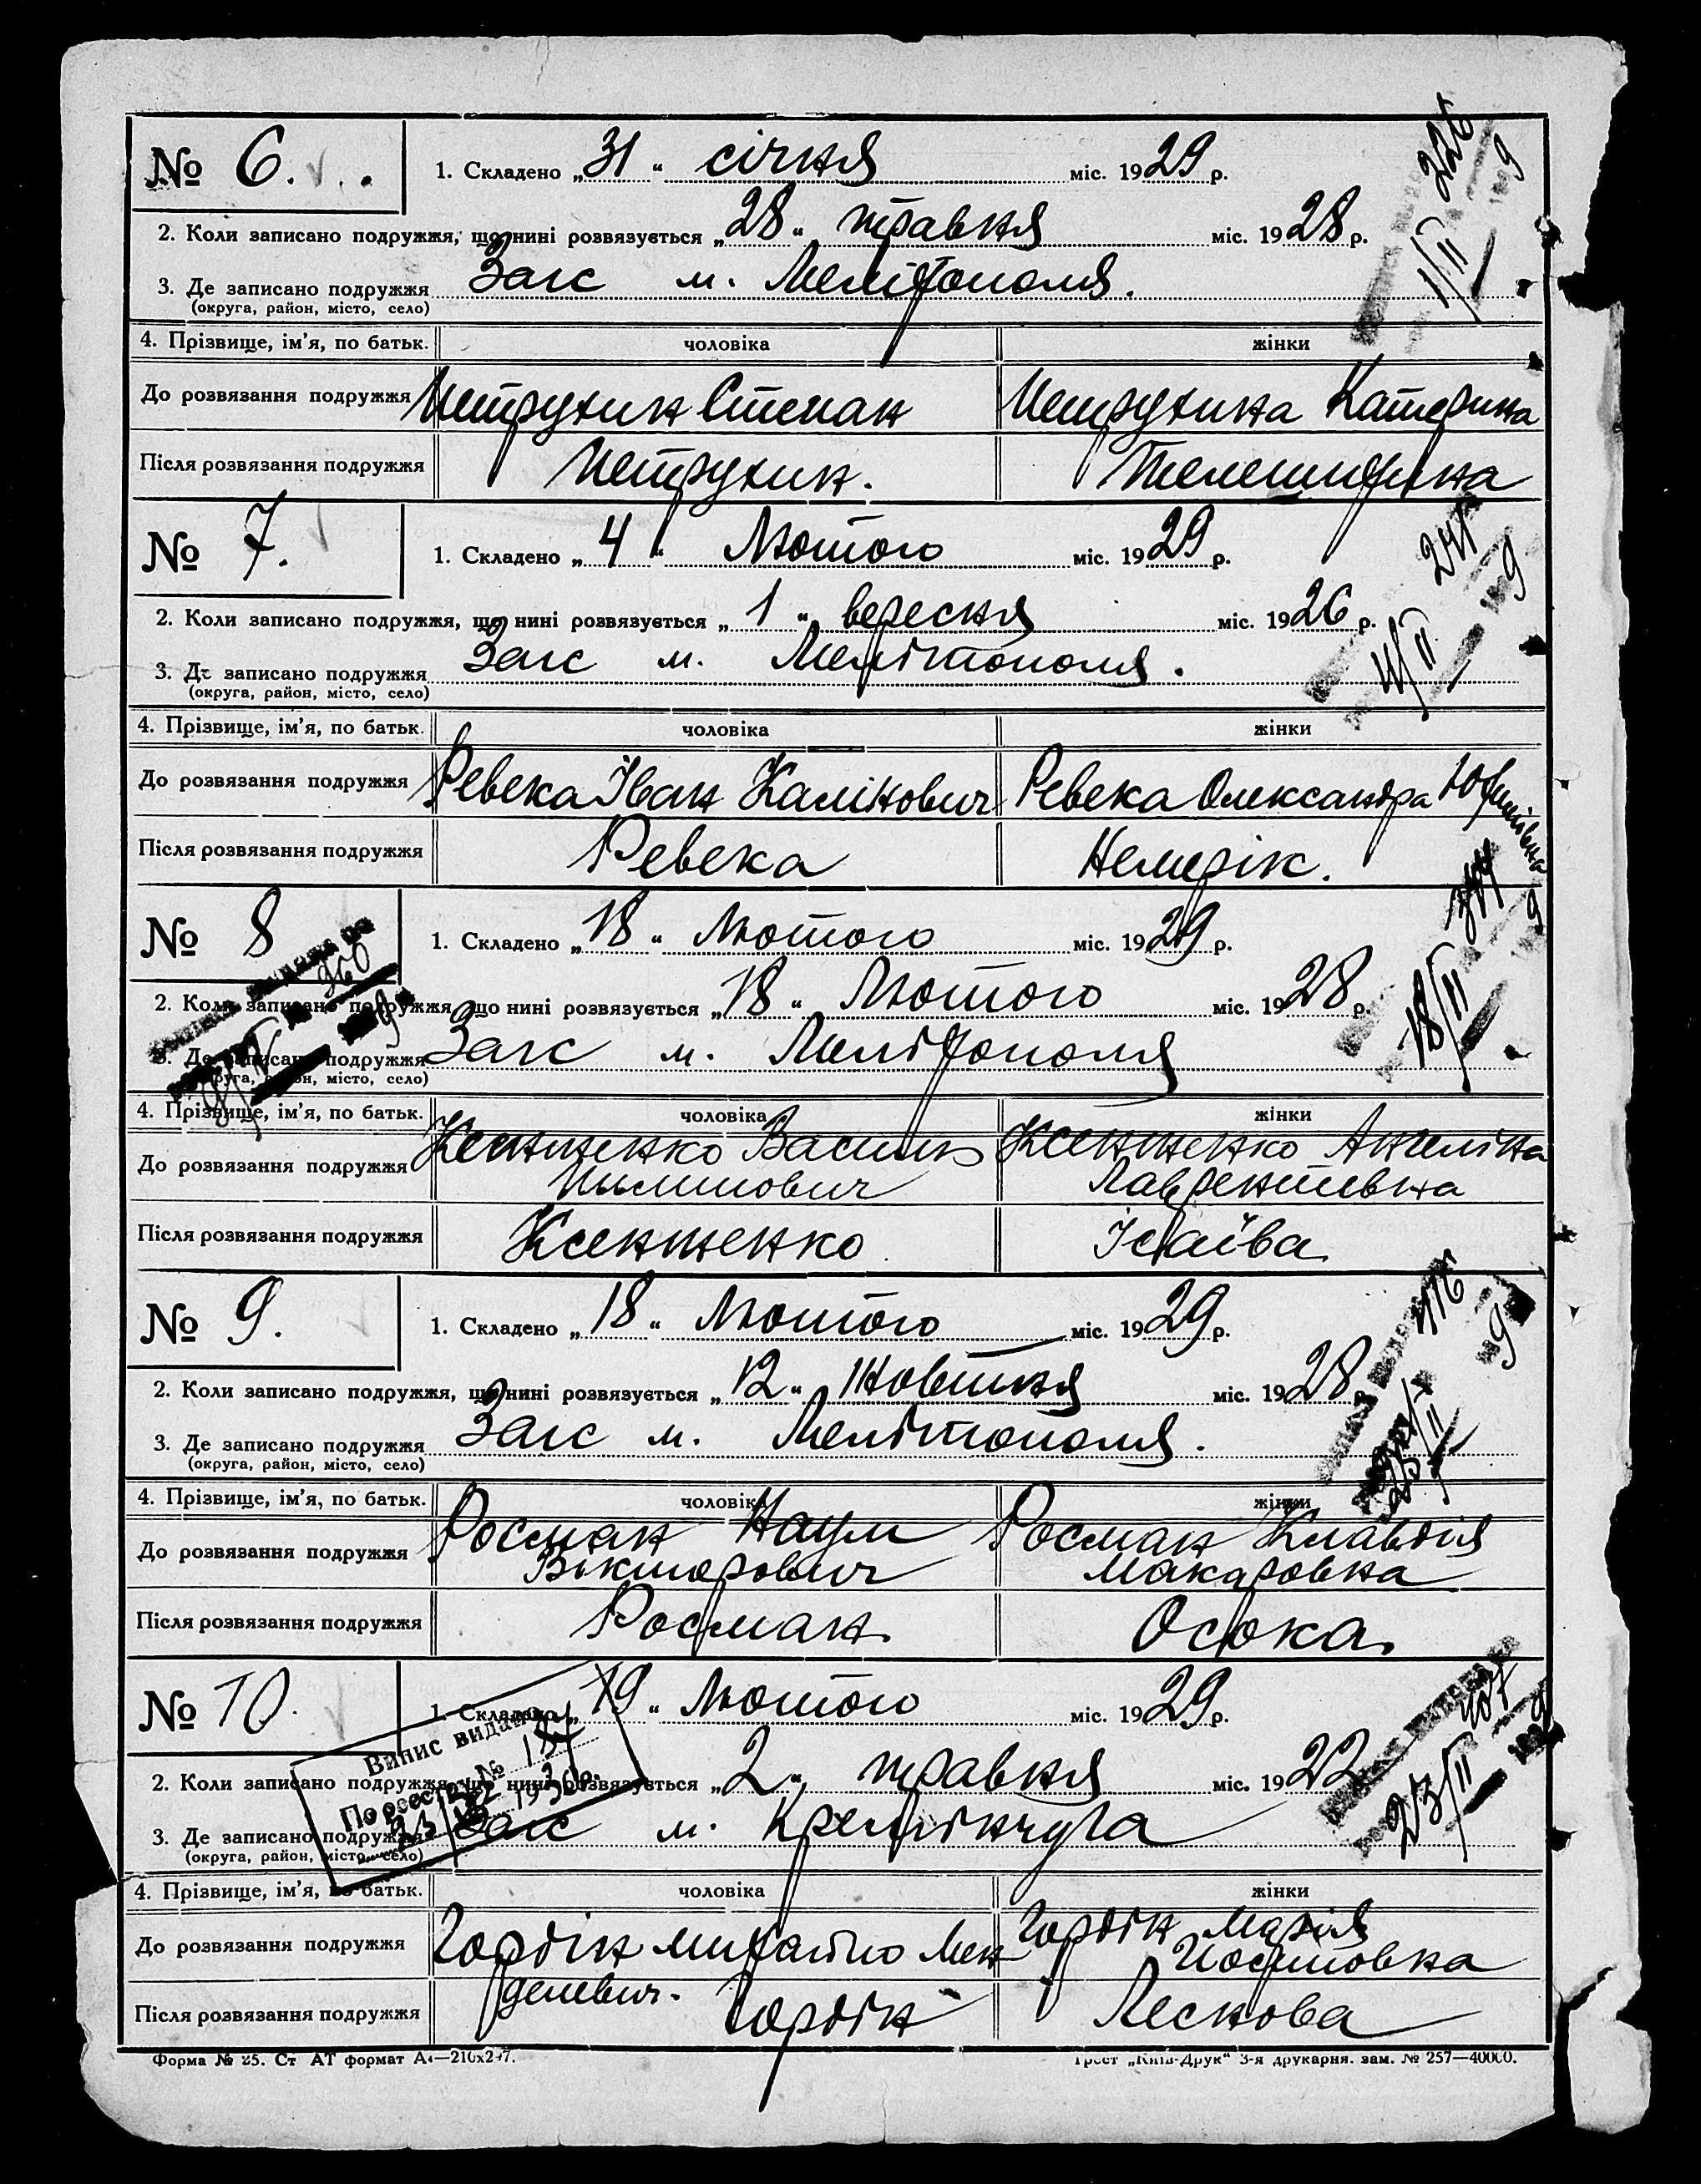 № 6.
1. Складено „31“ січня міс. 1929 р.
2. Коли записано подружжя, що нині розвязується „28“ травня міс. 1928 р.
3. Де записано подружжя Загс м. Мелітополя.
(округа, район, місто, село)
4. Прізвище, ім'я, по батьк. чоловіка жінки
До розвязання подружжя Петрухин Степан Петрухина Катерина
Після розвязання подружжя Петрухин.
№ 7.
1. Складено „4“ Лютого міс. 1929 р.
2. Коли записано подружжя, що нині розвязується „1“ вересня міс. 1926 р.
3. Де записано подружжя Загс м. Мелітополя.
(округа, район, місто, село)
4. Прізвище, ім'я, по батьк. чоловіка жінки
До розвязання подружжя Ревека Іван Калінович Ревека Олександра
Після розвязання подружжя Ревека Немерік.
№ 8
1. Складено „18“ Лютого міс. 1929 р.
2. Коли записано подружжя, що нині розвязується „18“ Лютого міс. 1928 р.
3. Де записано подружжя Загс м. Мелітополя
(округа, район, місто, село)
4. Прізвище, ім'я, по батьк. чоловіка жінки
До розвязання подружжя Ксенженко Василь Ксенженко Ангеліна
Лаврентіевна
Після розвязання подружжя Ксенженко Ісаїва
№ 9.
1. Складено „18“ Лютого міс. 1929 р.
2. Коли записано подружжя, що нині розвязується „12“ Жовтня міс. 1928
3. Де записано подружжя Загс м. Мелітополя.
(округа, район, місто, село)
4. Прізвище, ім'я, по батьк. чоловіка жінки
До розвязання подружжя Росман Наум Росман Клавдія
Вікторович Макаровна
Після розвязання подружжя Росман. Осока.
№ 10.
1. Складено „19“ Лютого міс. 1929 р.
Випис видано
По реєстру №
2. Коли записано подружжя, що нині розвязується „2“ травня міс. 1922
3. Де записано подружжя Загс м. Кремінчуга
(округа, район, місто, село)
4. Прізвище, ім'я, по батьк. чоловіка жінки
До розвязання подружжя Гордін Михайло Мен Гордін Марія
делевич. Йосиповна
Після розвязання подружжя Гордін Лескова
Форма № 25. Ст АТ формат А4—210х297.
Трест „Київ-Друк“ 3-я друкарня. зам. № 257—40000.